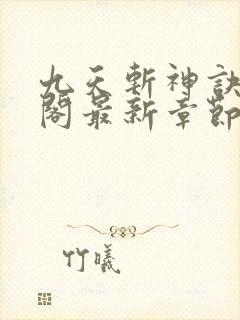 九天斬神訣
閣最新章節
竹曦